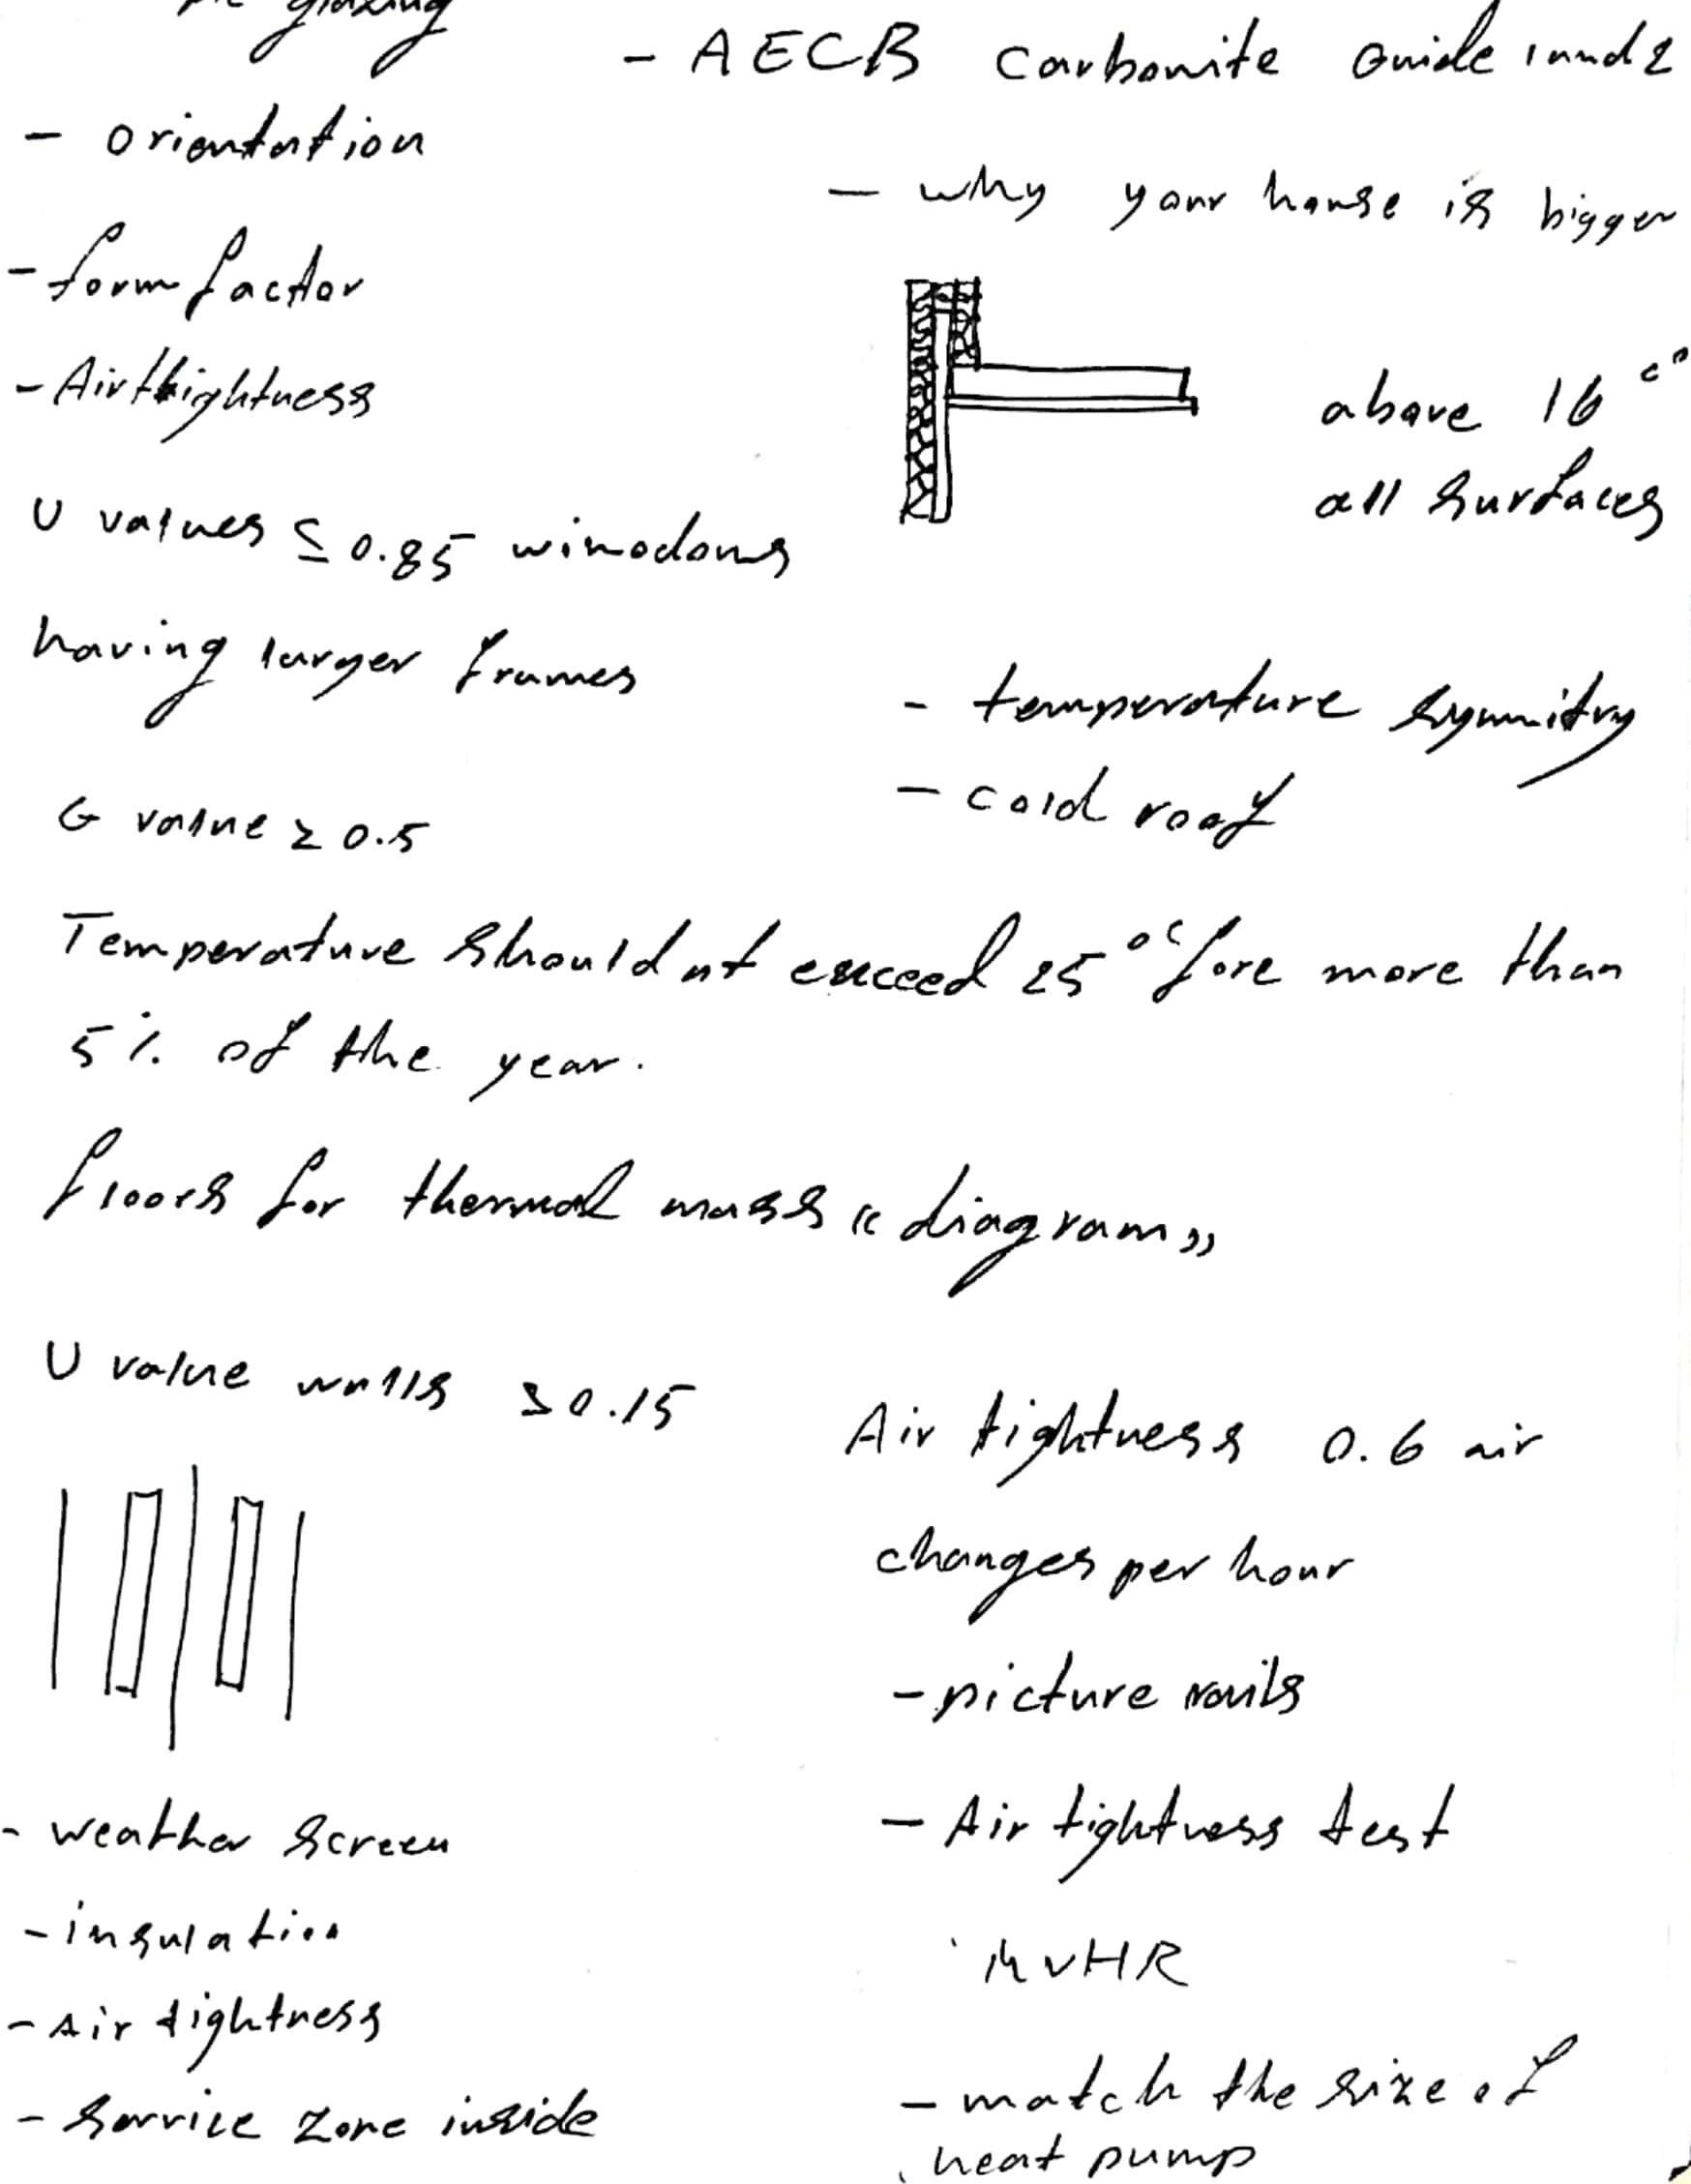 glazing
- AECB Carbonite Guide 1 and 2
- orientation
- why your house is bigger
- form factor
- Airthightness
above 16 c°
all surfaces
U values ≤ 0.85 winodows
having larger frames
- temperature symmitry
- cold roof
G value ≥ 0.5
Temperature should nt exceed 25 °c fore more than
5% of the year.
floors for thermal mass "diagram"
U value walls ≥ 0.15
Air tightness 0.6 air
changes per hour
- picture rails
- Air tightness test
MVHR
- match the size of
heat pump
- weather screen
- insulation
- Air tightness
- service zone inside